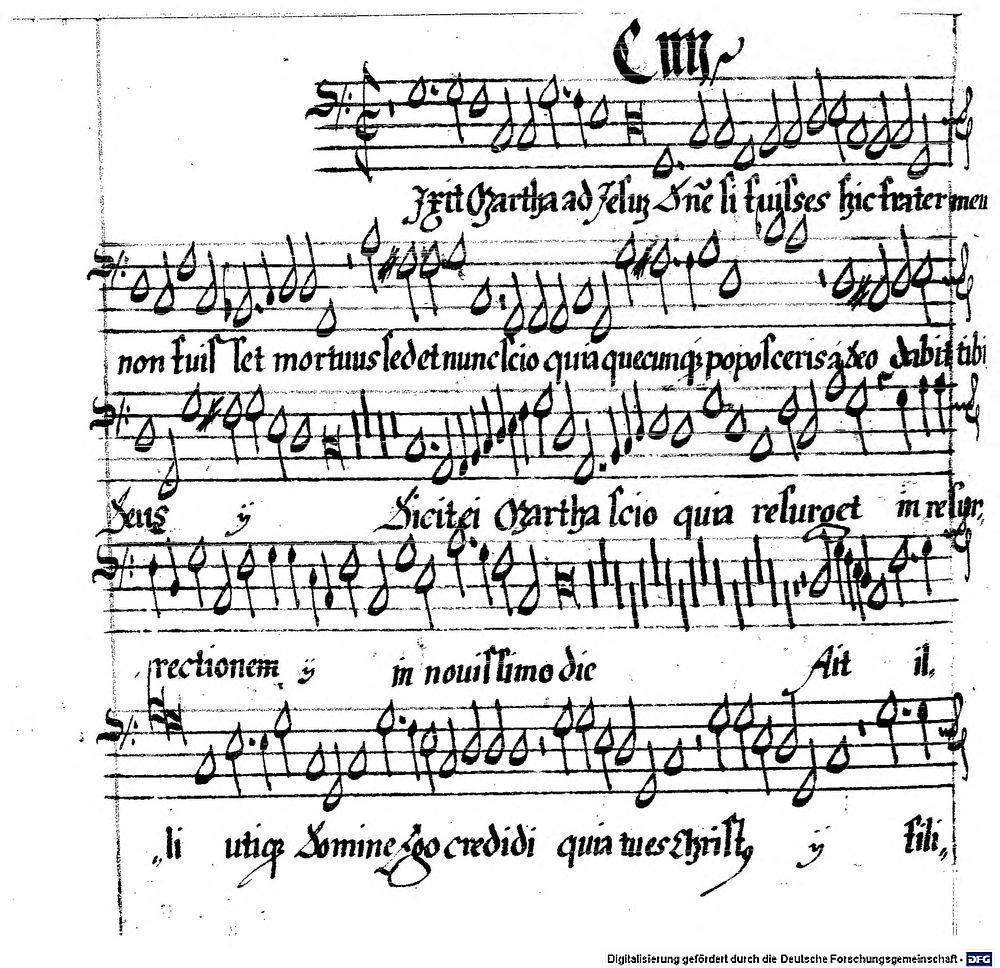 Dixit Martha ad Jesuz Dñe si fuisses hic frater meu
non fuis set mortuus sed et nunc scio quia quecunqz poposceris a deo dabit tibi
Deus ij Dicit ei Martha scio quia resurget in resur,
rectionem ij in novissimo die Ait il,
„li utiqz Domine Ego credidi quia tu es Christ9 ij fili„
Digitalisierung gefördert durch die Deutsche Forschungsgemeinschaft - DFG